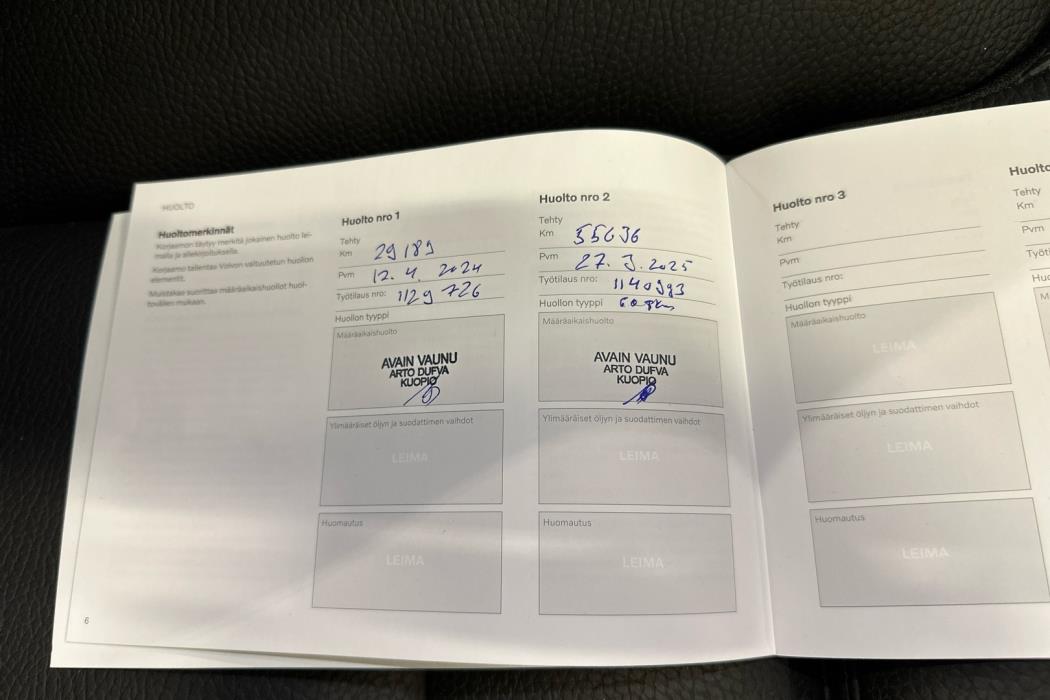 HUOLTO
Huoltomerkinnät
Korjaamon täytyy merkitä jokainen huolto lei-
malla ja allekirjoituksella.
Korjaamo tallentaa Volvon valtuutetun huollon
elementit.
Muistakaa suorittaa määräaikaishuollot huol-
tovälien mukaan.
6
Huolto nro 1
Tehty
Km 29189
Pvm 12. 4. 2024
Työtilaus nro: 1129 726
Huollon tyyppi
Määräaikaishuolto
AVAIN VAUNU
ARTO DUFVA
KUOPIO
Ylimääräiset öljyn ja suodattimen vaihdot
LEIMA
Huomautus
LEIMA
Huolto nro 2
Tehty
Km 55636
Pvm 27. 3. 2025
Työtilaus nro: 1140993
Huollon tyyppi 60
Määräaikaishuolto
AVAIN VAUNU
ARTO DUFVA
KUOPIO
Ylimääräiset öljyn ja suodattimen vaihdot
LEIMA
Huomautus
LEIMA
Huolto nro 3
Tehty
Km
Pvm
Työtilaus nro:
Huollon tyyppi
Määräaikaishuolto
LEIMA
Ylimääräiset öljyn ja suodattimen vaihdot
LEIMA
Huomautus
LEIMA
Huolto
Tehty
Km
Pvm